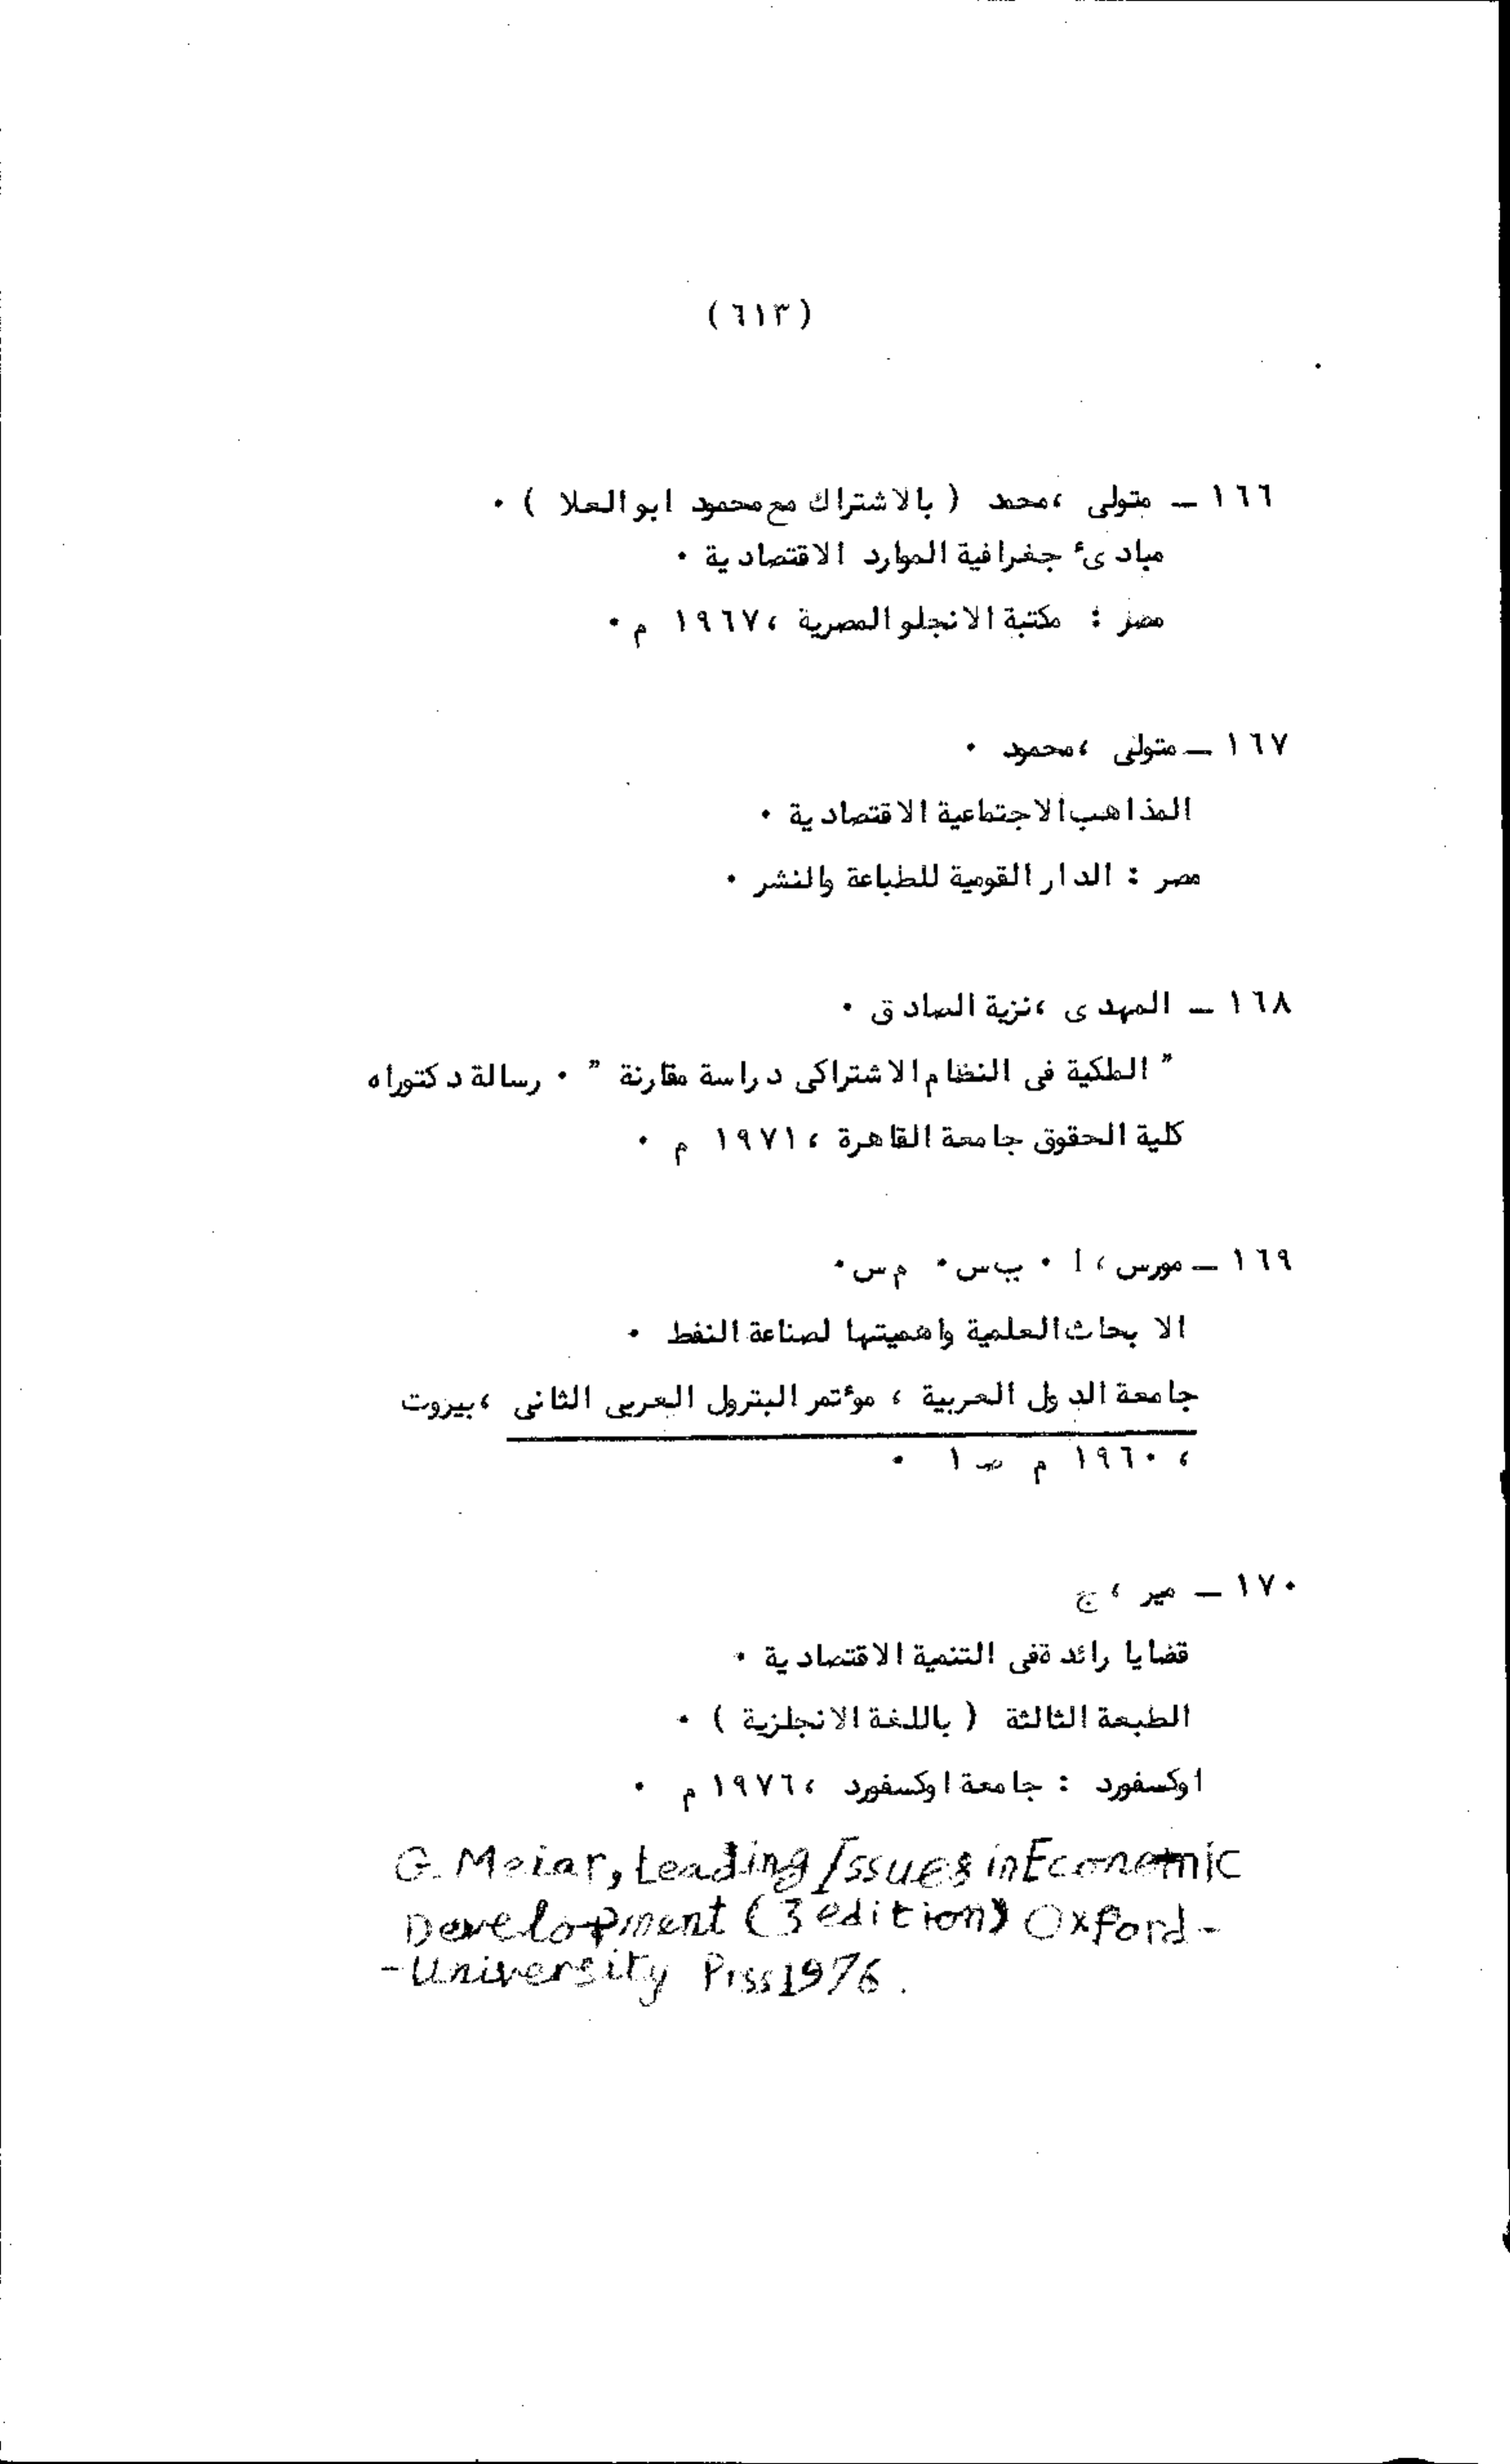 (٦١٣)
١٦٦ ـ متولى ،محمد ( بالاشتراك مع محمود ابو العلا ) ٠
مبادىء جغرافية الموارد الاقتصادية ٠
مصر : مكتبة الانجلو المصرية ،١٩٦٧ م ٠
١٦٧ ـ متولى ،محمود ٠
المذاهب الاجتماعية الاقتصادية ٠
مصر : الدار القومية للطباعة والنشر ٠
١٦٨ ـ المهدى ،نزية الصادق ٠
" الملكية فى النظام الاشتراكى دراسة مقارنة " ٠ رسالة دكتوراه
كلية الحقوق جامعة القاهرة ،١٩٧١ م ٠
١٦٩ ـ مورس ، ا ٠ ب س ٠ م س ٠
الا بحاث العلمية واهميتها لصناعة النفط ٠
جامعة الدول العربية ، مؤتمر البترول العربى الثانى ،بيروت
، ١٩٦٠ م صـ ١ ٠
١٧٠ ـ مير ، ج
قضايا رائدة فى التنمية الاقتصادية ٠
الطبعة الثالثة ( باللغة الانجلزية ) ٠
اوكسفورد : جامعة اوكسفورد ،١٩٧٦ م ٠
G. Meiar, Leading Issues in Economic
Development (3 edition) Oxford-
-University Prss 1976.